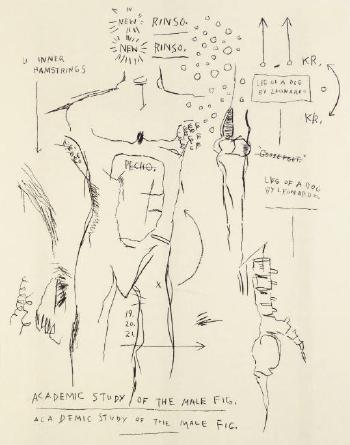 NEW RINSO.
NEW RINSO.
INNER
HAMSTRINGS
KR.
LEG OF A DOG
BY LEONARDO
KR.
"GOOSE FOOT"
LEG OF A DOG
BY LEONARDO
PECHO.
X
19.
20.
21.
ACADEMIC STUDY OF THE MALE FIG.
ACADEMIC STUDY OF THE MALE FIG.